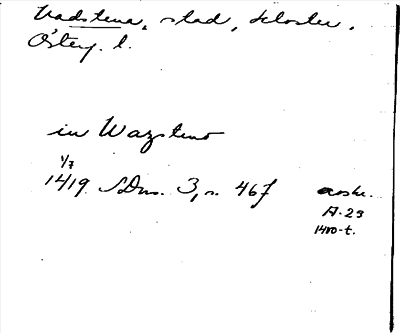 Vadstena, stad, kloster.
Österg. l.
in Wazsteno
1/7
1419 SDns. 3, s. 467 avskr.
A.23
1400-t.